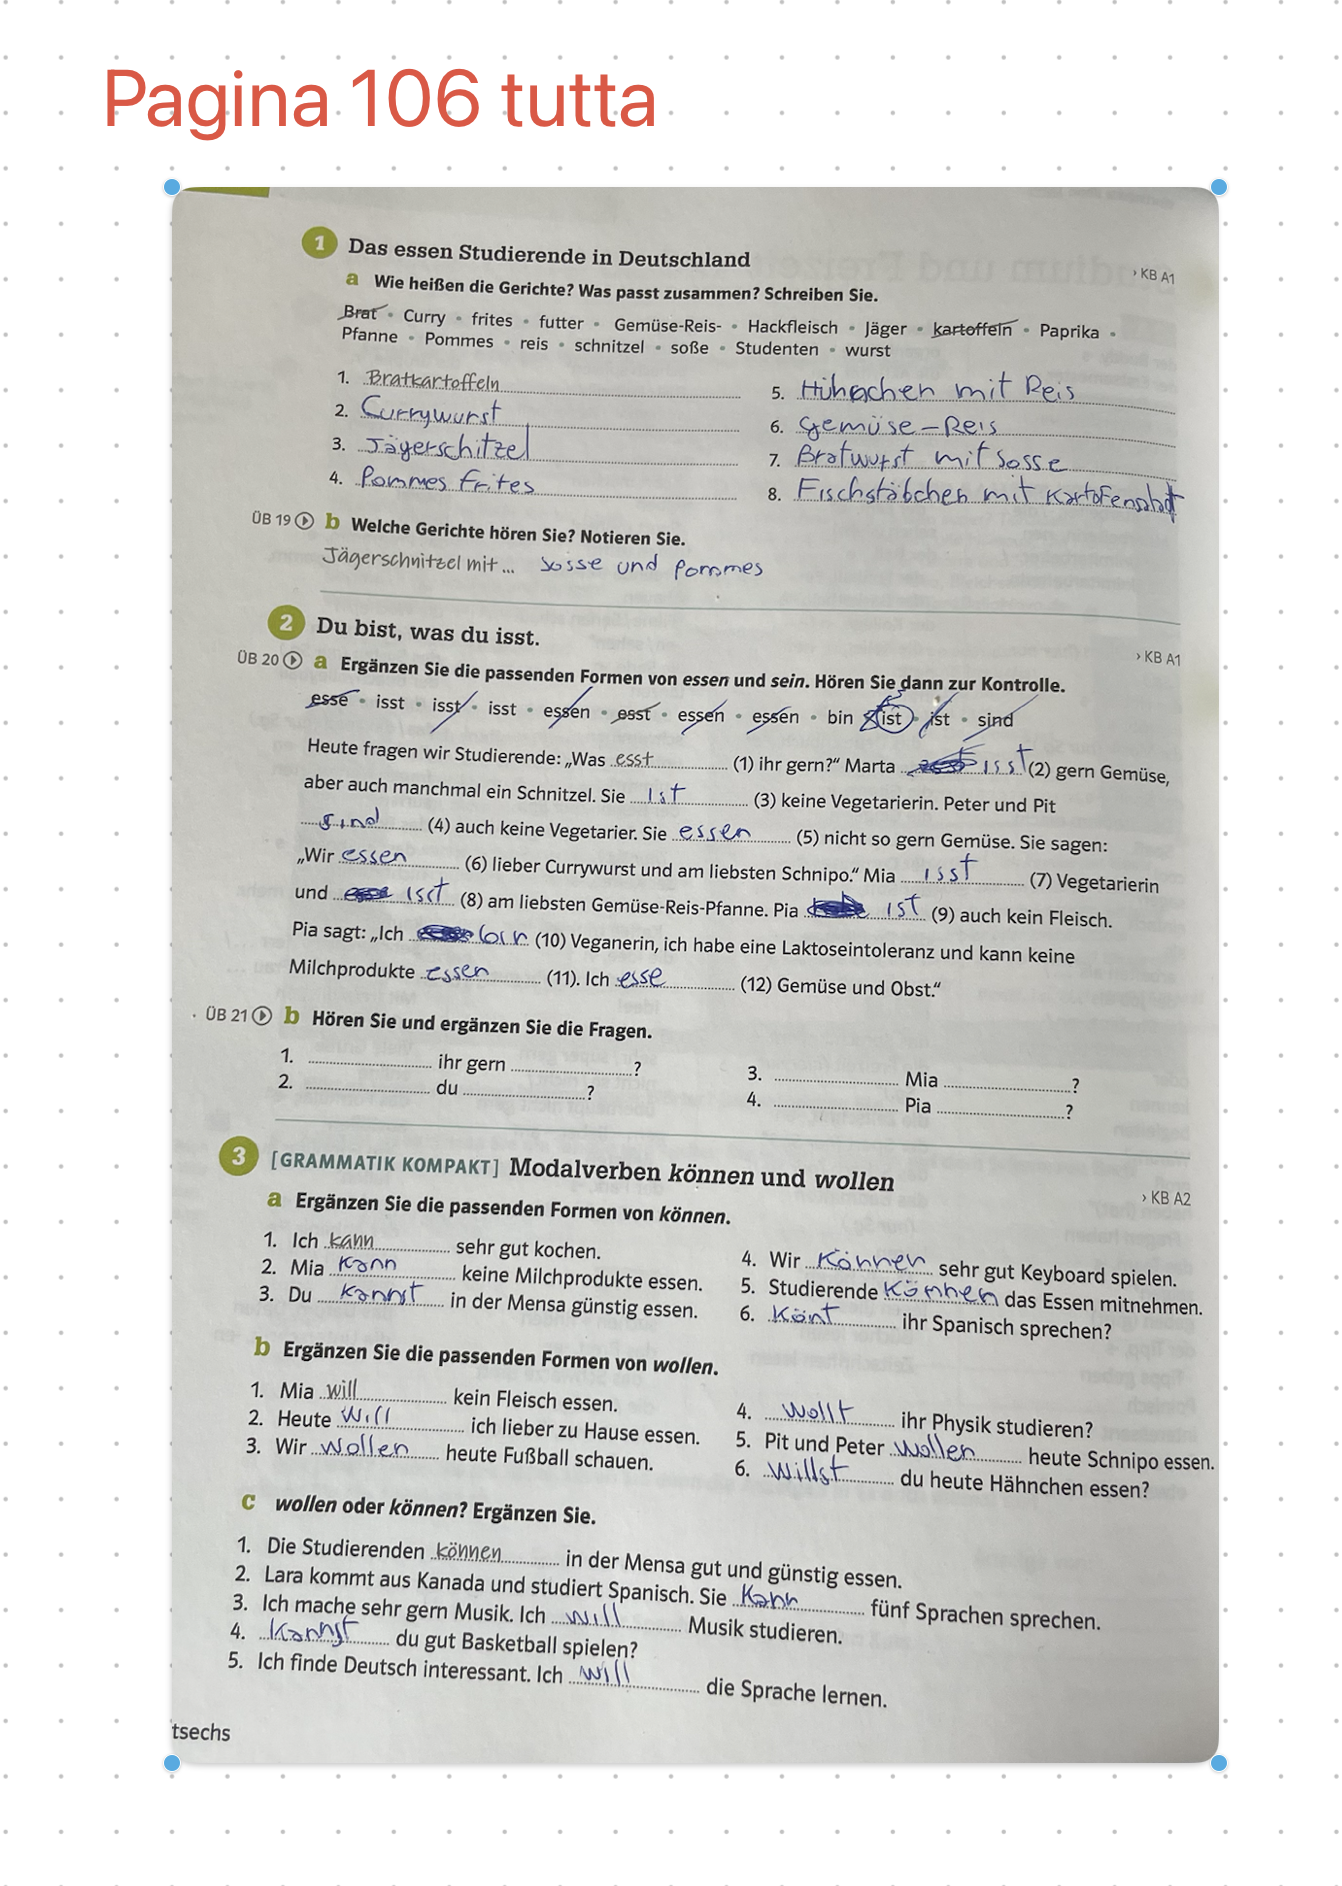 Pagina 106 tutta
1 Das essen Studierende in Deutschland
› KB A1
a Wie heißen die Gerichte? Was passt zusammen? Schreiben Sie.
Brat • Curry • frites • futter • Gemüse-Reis- • Hackfleisch • Jäger • kartoffeln • Paprika •
Pfanne • Pommes • reis • schnitzel • soße • Studenten • wurst
1. Bratkartoffeln
2. Currywurst
3. Jägerschitzel
4. Pommes frites
5. mit Reis
6. Gemüse-Reis
7. Bratwurst mit Sosse
8. Fischstäbchen mit
ÜB 19 b Welche Gerichte hören Sie? Notieren Sie.
Jägerschnitzel mit ... Sosse und Pommes
2 Du bist, was du isst.
› KB A1
ÜB 20 a Ergänzen Sie die passenden Formen von essen und sein. Hören Sie dann zur Kontrolle.
esse • isst • isst • isst • essen • esst • essen • essen • bin • ist • ist • sind
Heute fragen wir Studierende: „Was esst (1) ihr gern?“ Marta isst (2) gern Gemüse,
aber auch manchmal ein Schnitzel. Sie ist (3) keine Vegetarierin. Peter und Pit
sind (4) auch keine Vegetarier. Sie essen (5) nicht so gern Gemüse. Sie sagen:
„Wir essen (6) lieber Currywurst und am liebsten Schnipo.“ Mia isst (7) Vegetarierin
und isst (8) am liebsten Gemüse-Reis-Pfanne. Pia ist (9) auch kein Fleisch.
Pia sagt: „Ich bin (10) Veganerin, ich habe eine Laktoseintoleranz und kann keine
Milchprodukte essen (11). Ich esse (12) Gemüse und Obst.“
ÜB 21 b Hören Sie und ergänzen Sie die Fragen.
1. ihr gern ?
2. du ?
3. Mia ?
4. Pia ?
3 [GRAMMATIK KOMPAKT] Modalverben können und wollen
› KB A2
a Ergänzen Sie die passenden Formen von können.
1. Ich kann sehr gut kochen.
2. Mia kann keine Milchprodukte essen.
3. Du kannst in der Mensa günstig essen.
4. Wir können sehr gut Keyboard spielen.
5. Studierende können das Essen mitnehmen.
6. Könt ihr Spanisch sprechen?
b Ergänzen Sie die passenden Formen von wollen.
1. Mia will kein Fleisch essen.
2. Heute will ich lieber zu Hause essen.
3. Wir wollen heute Fußball schauen.
4. Wollt ihr Physik studieren?
5. Pit und Peter wollen heute Schnipo essen.
6. Willst du heute Hähnchen essen?
c wollen oder können? Ergänzen Sie.
1. Die Studierenden können in der Mensa gut und günstig essen.
2. Lara kommt aus Kanada und studiert Spanisch. Sie kann fünf Sprachen sprechen.
3. Ich mache sehr gern Musik. Ich will Musik studieren.
4. Kannst du gut Basketball spielen?
5. Ich finde Deutsch interessant. Ich will die Sprache lernen.
tsechs